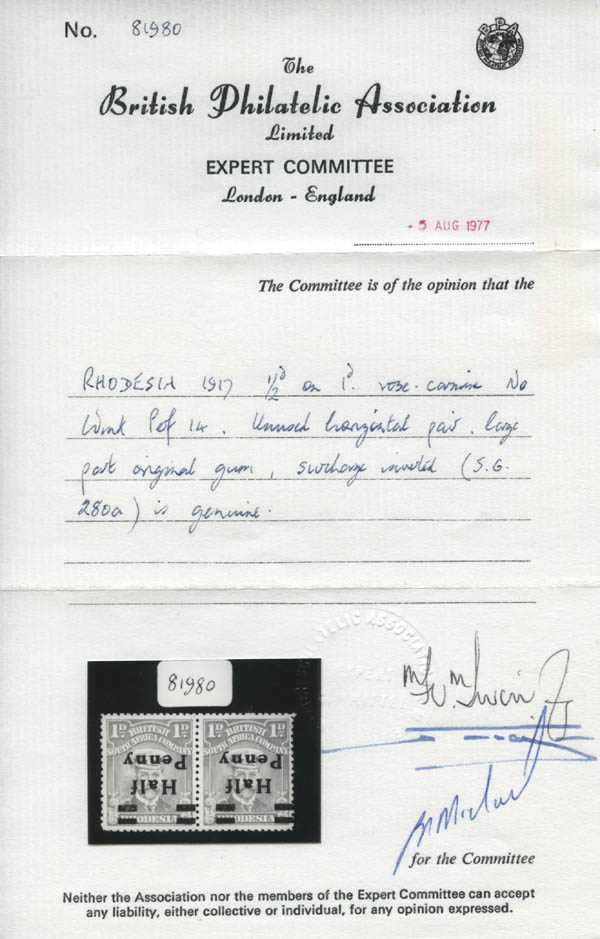 No. 81980
BPA
The
British Philatelic Association
Limited
EXPERT COMMITTEE
London - England
- 5 AUG 1977
The Committee is of the opinion that the
RHODESIA 1917 ½d on 1d. rose-carmine No
Wmk Perf 14. Unused horizontal pair, large
part original gum, surcharge inverted (S.G.
280a) is genuine.
PHILATELIC ASSOCIATION
81980
1D BRITISH 1D 1D BRITISH 1D
SOUTH AFRICA COMPANY SOUTH AFRICA COMPANY
Penny Penny
Half Half
RHODESIA RHODESIA
for the Committee
Neither the Association nor the members of the Expert Committee can accept
any liability, either collective or individual, for any opinion expressed.